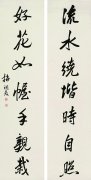 流水繞階時自照
好花如幄手親栽